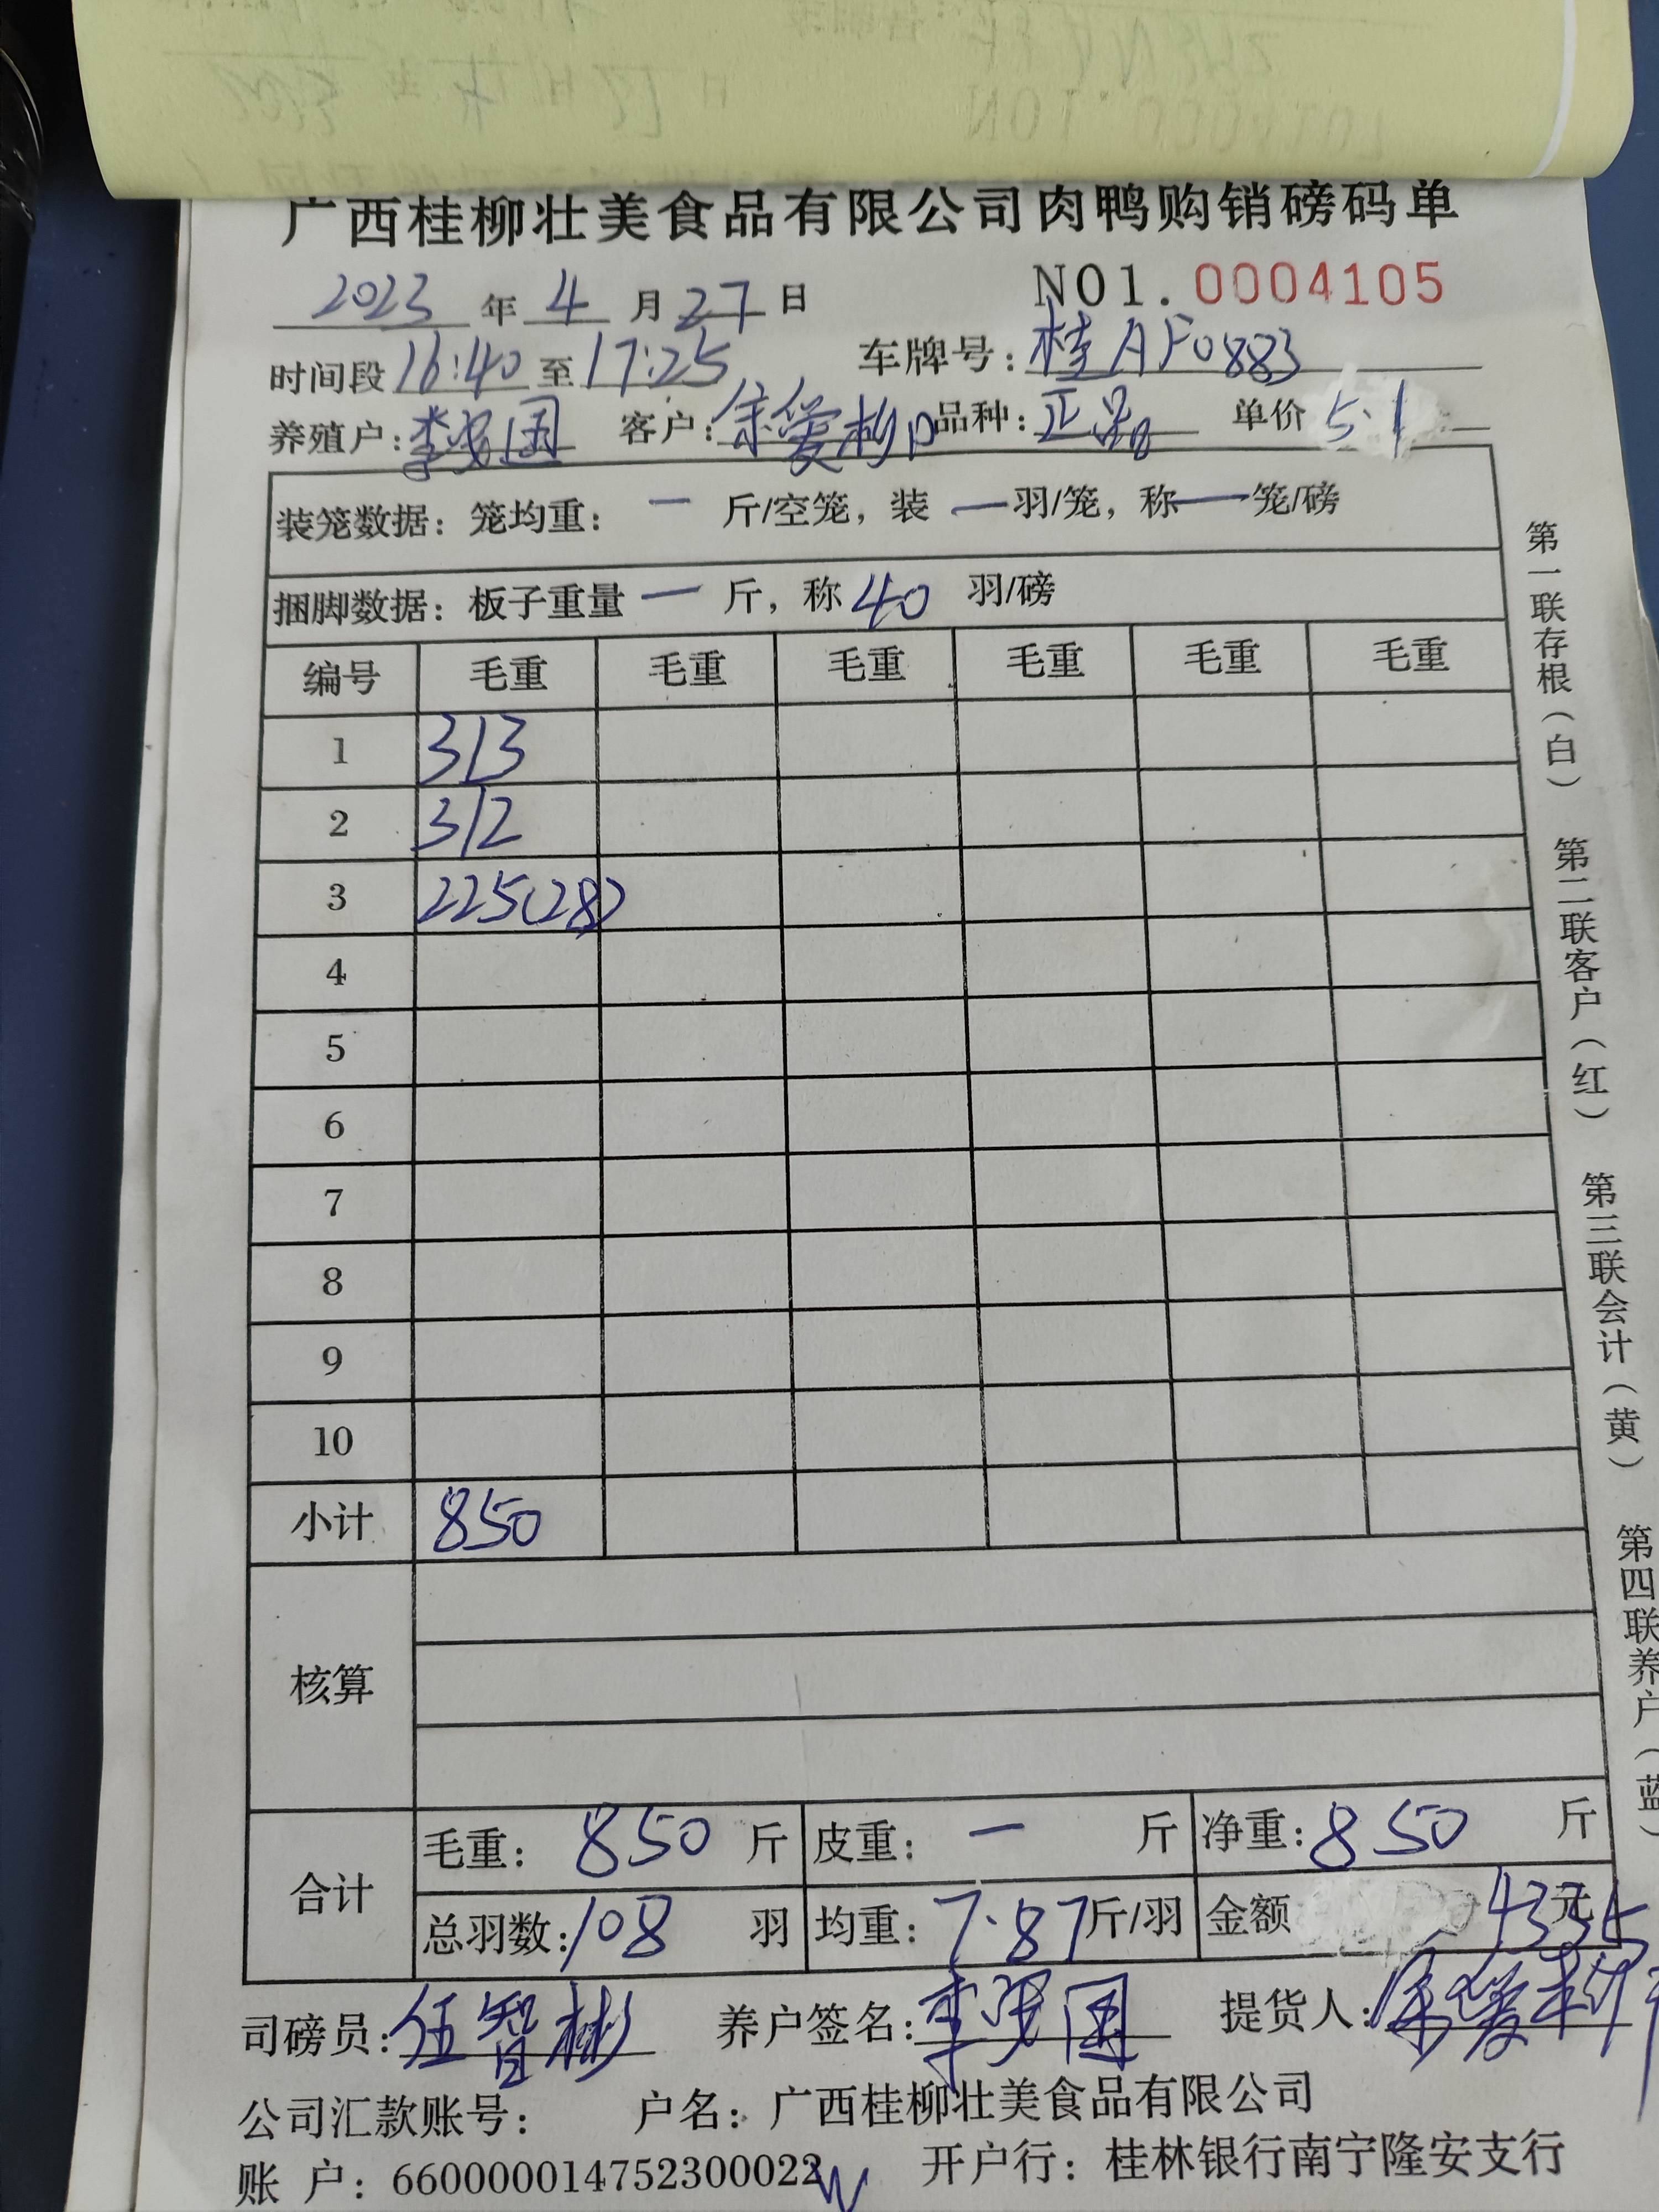 广西桂柳壮美食品有限公司肉鸭购销磅码单
2023 年 4 月 27 日 NO1. 0004105
时间段 16:40 至 17:25 车牌号: 桂AF0883
养殖户: 李 国 客户: 余爱柳 品种: 正品 单价 5.1
装笼数据: 笼均重: — 斤/空笼, 装 — 羽/笼, 称 — 笼/磅
捆脚数据: 板子重量 — 斤, 称 40 羽/磅
编号 毛重 毛重 毛重 毛重 毛重 毛重
1 313
2 312
3 225(28)
4
5
6
7
8
9
10
小计 850
核算
合计 毛重: 850 斤 皮重: — 斤 净重: 850 斤
总羽数: 108 羽 均重: 7.87 斤/羽 金额 4335 元
司磅员: 伍智彬 养户签名: 李 国 提货人: 余爱柳
公司汇款账号: 户名: 广西桂柳壮美食品有限公司
账 户: 660000014752300022 开户行: 桂林银行南宁隆安支行
第一联存根(白) 第二联客户(红) 第三联会计(黄) 第四联养户(蓝)